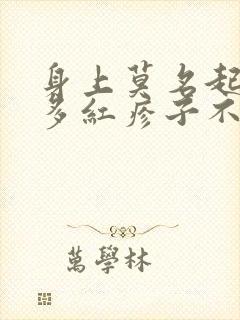 身上莫名起
多紅疹子不
萬學林